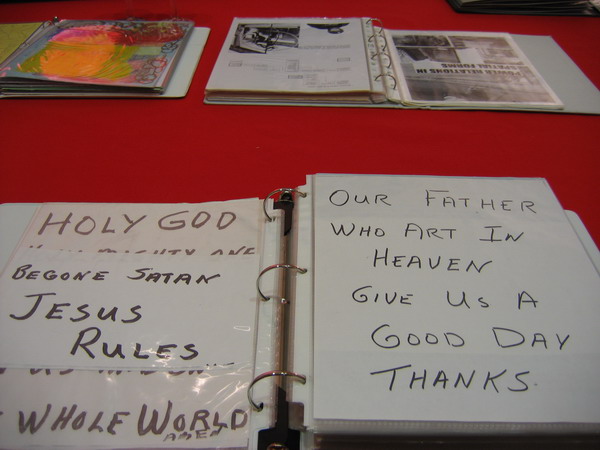 POWER RELATIONS IN
SPATIAL FORMS
HOLY GOD
BEGONE SATAN
JESUS
RULES
WHOLE WORLD
AMEN
OUR FATHER
WHO ART IN
HEAVEN
GIVE US A
GOOD DAY
THANKS.